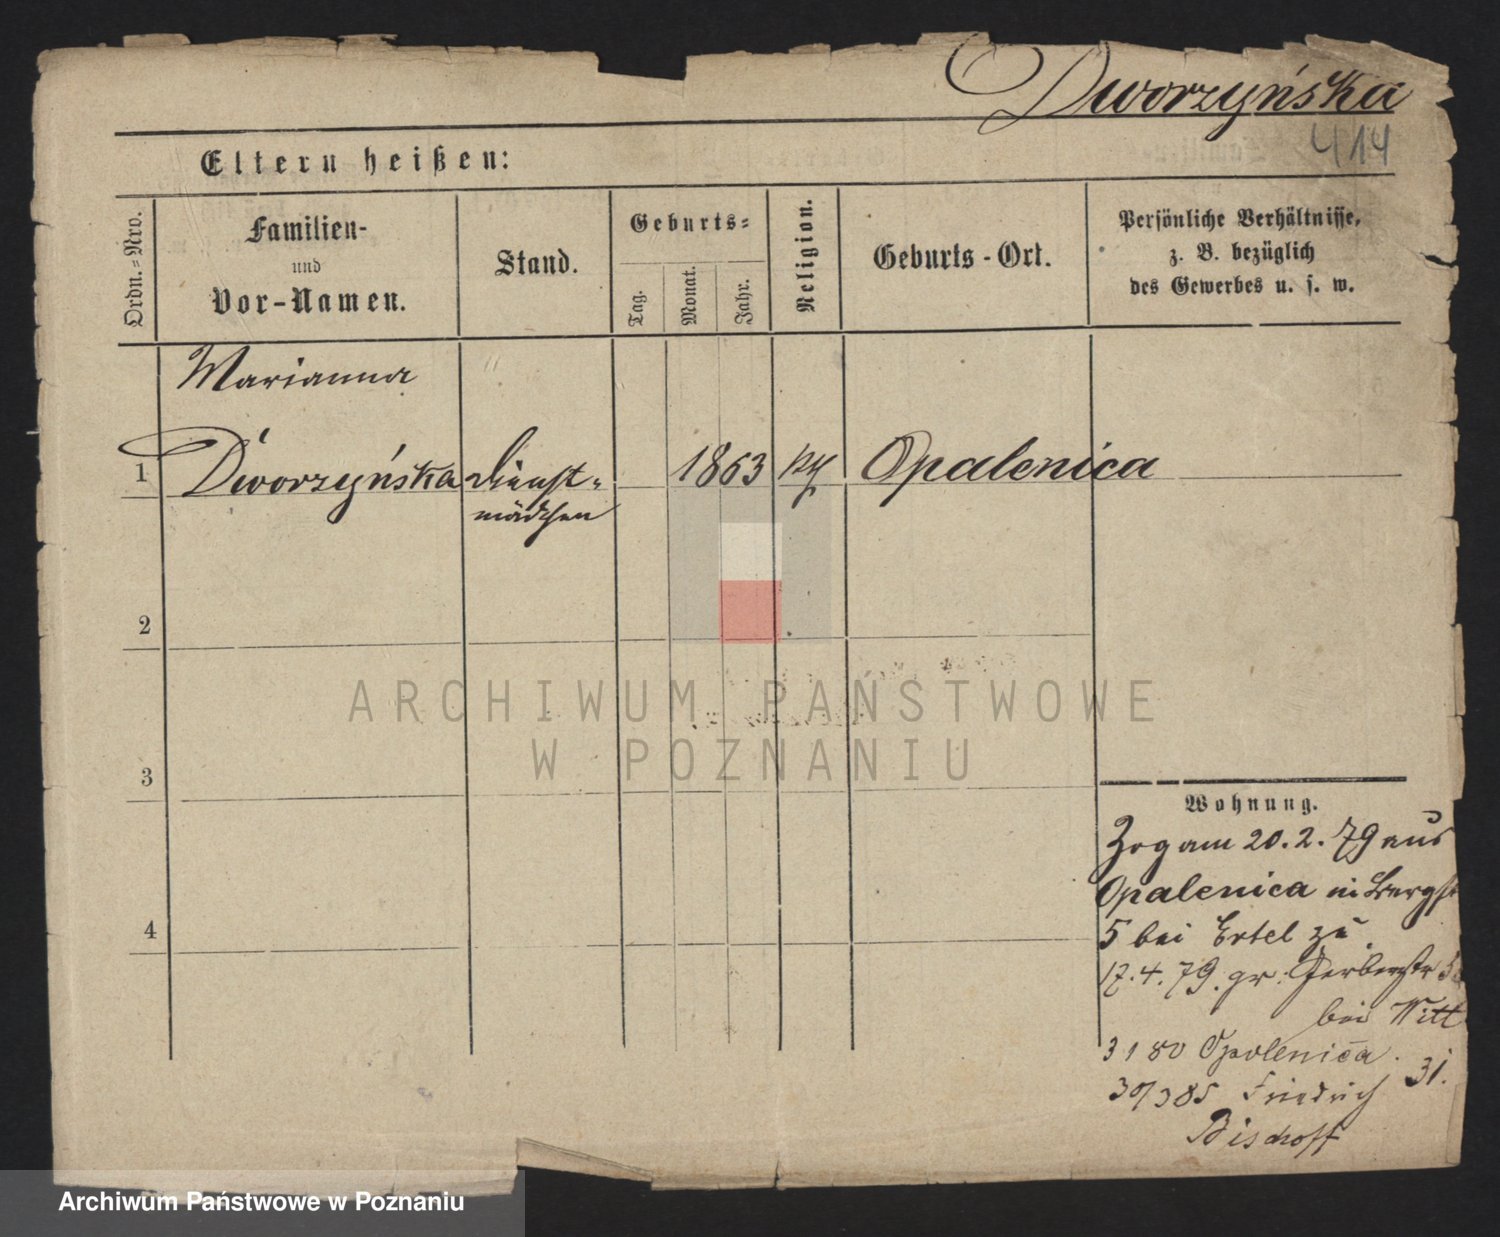 Dworzyńska
414
Eltern heißen:
Ordn.=Nro.
Familien-
und
Vor-Namen.
Stand.
Geburts=
Tag.
Monat.
Jahr.
Religion.
Geburts-Ort.
Persönliche Verhältnisse,
z. B. bezüglich
des Gewerbes u. s. w.
Marianna
1 Dworzyńska Dienst= 1863 kth Opalenica
mädchen
2
ARCHIWUM PAŃSTWOWE
W POZNANIU
3
Wohnung.
Zog am 20.2.79 aus
Opalenica in Bergst
4
5 bei Ertel zu
17.4.79. gr. Gerberstr
bei Witt
3 1 80 Opalenica.
30/3 85 Friedrich 31.
Bischoff
Archiwum Państwowe w Poznaniu